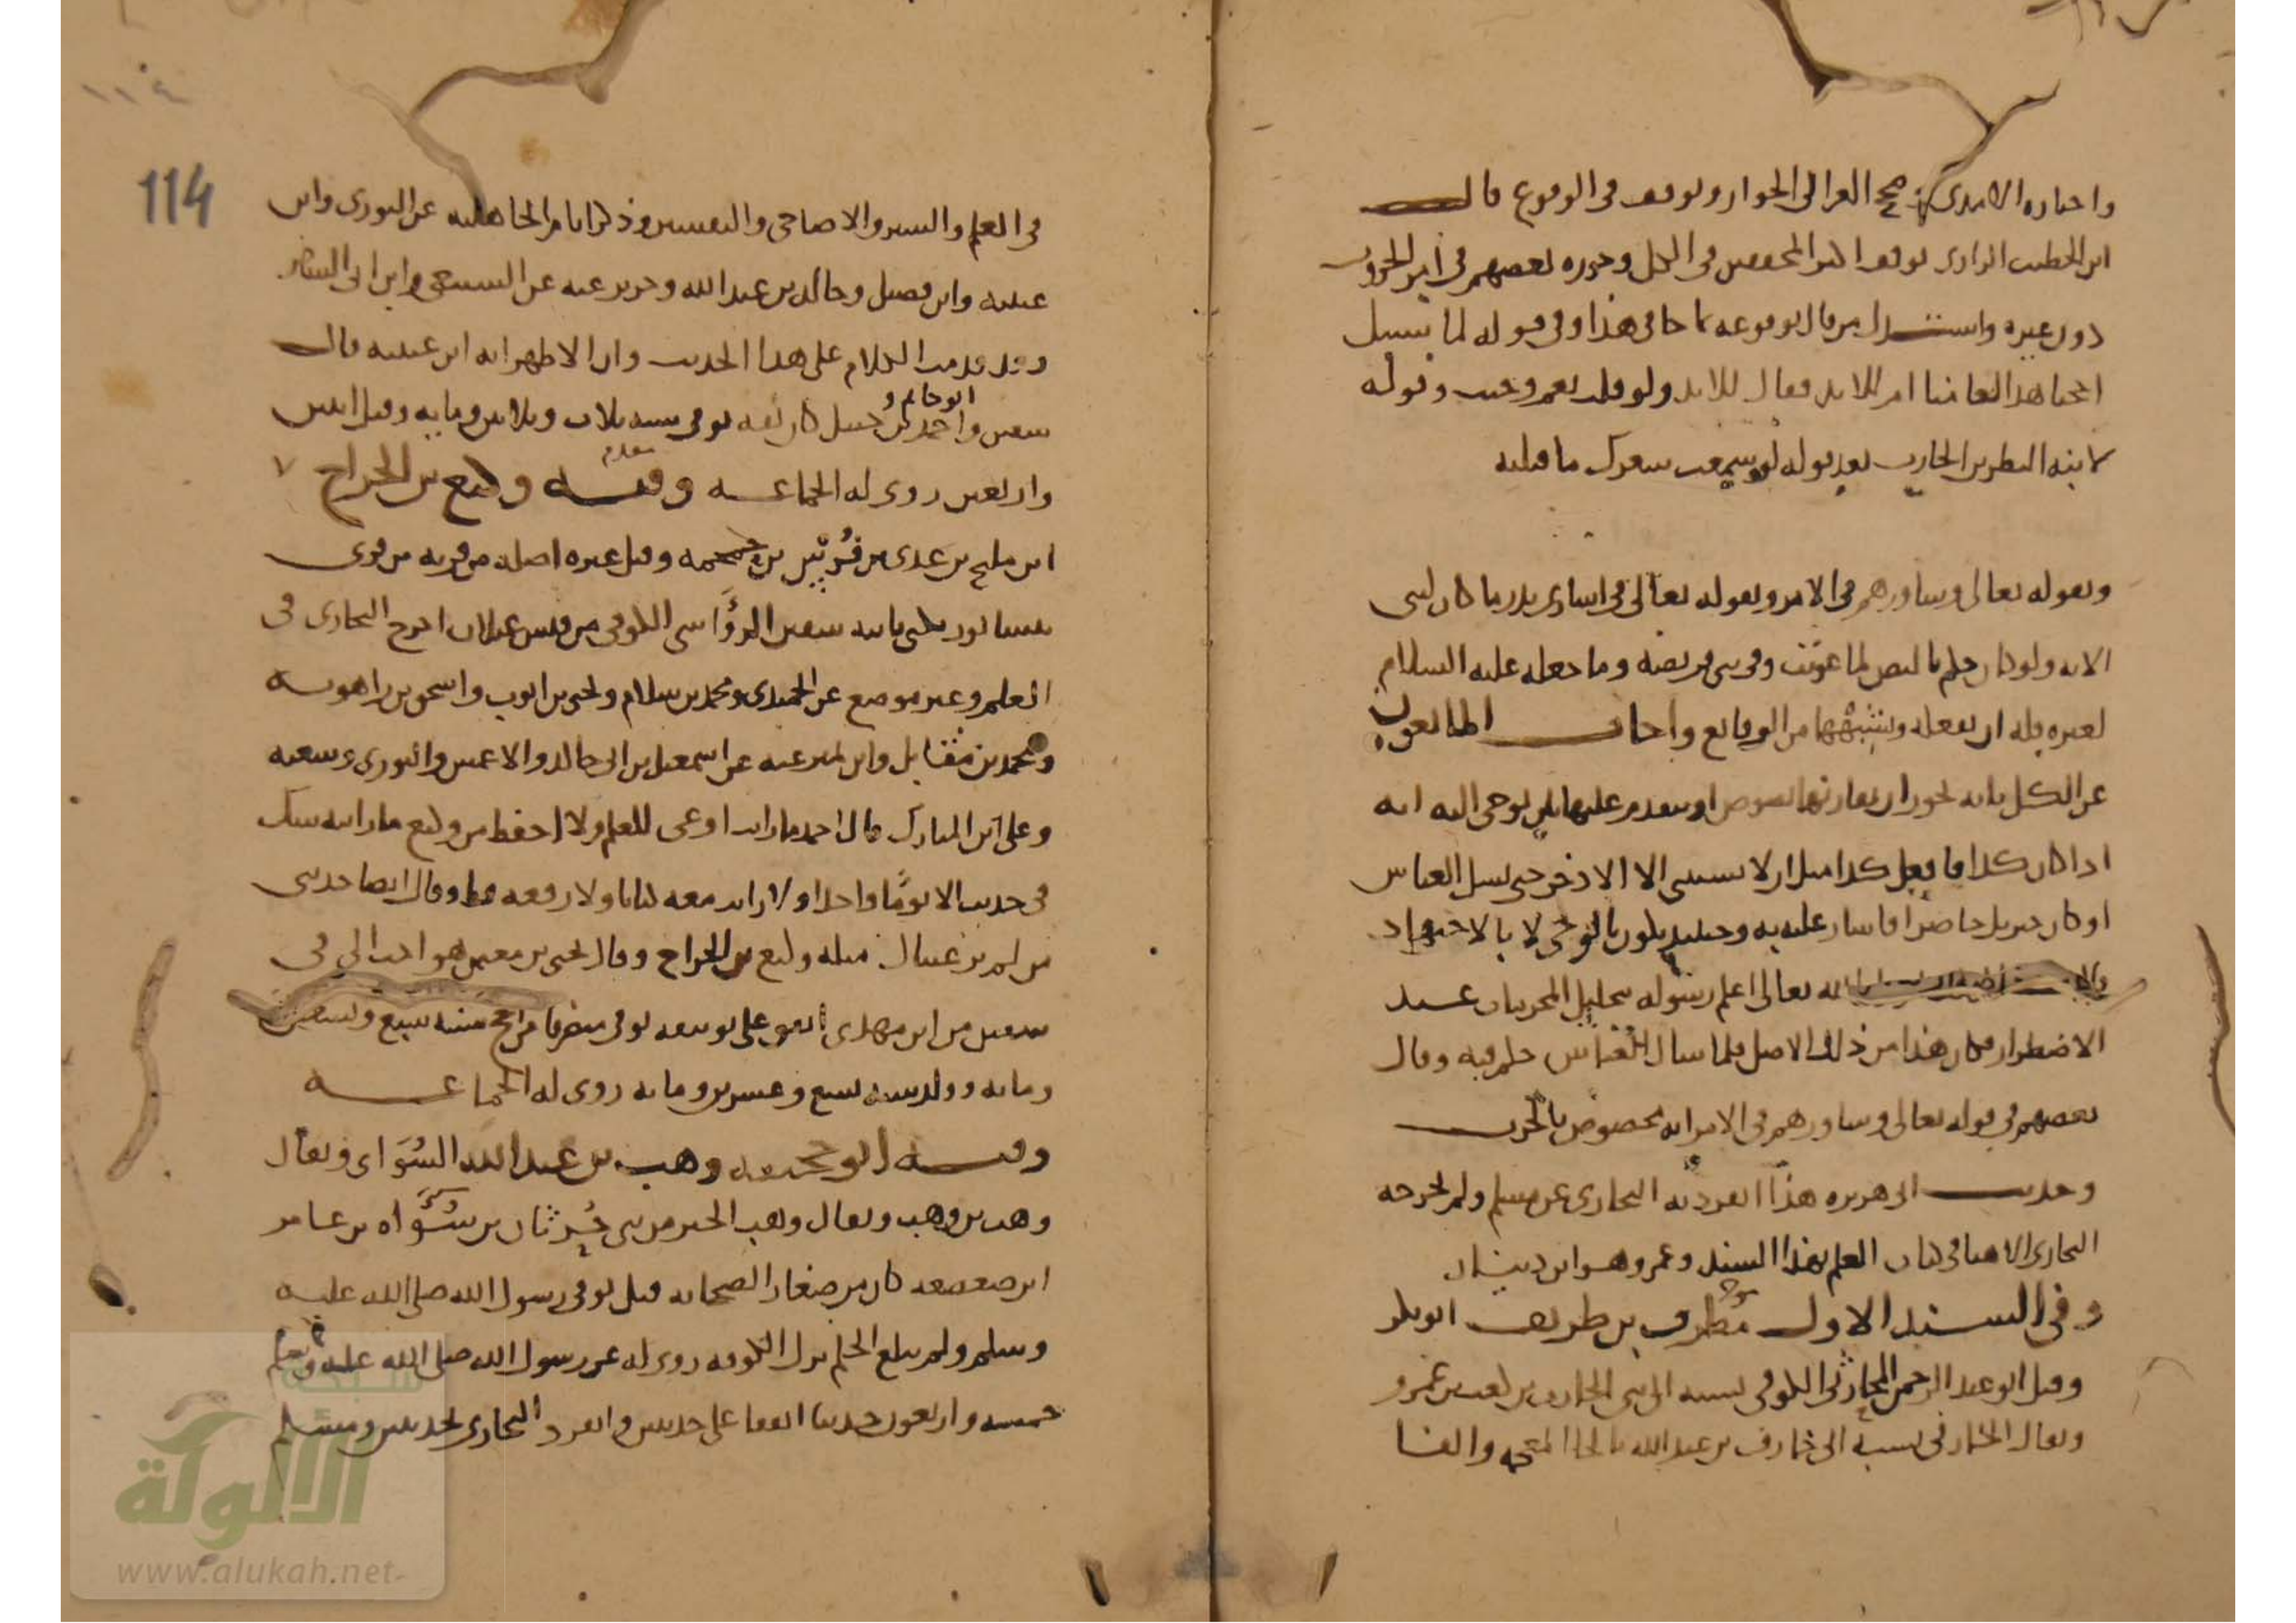 واختاره الآمدي وصحح الغزالي الجواز وتوقف في الوقوع قال
ابن الخطيب الرازي توقف اكثر المحققين في الكل وجوزه بعضهم في امر الحروب
دون غيره واستدل من قال بوقوعه بما جا في هذا وفي قوله لما سئل
احجنا هذا لعامنا ام للابد فقال للابد ولو قلت نعم لوجبت وقوله
لابنة النضر بن الحارث بعد قوله لو سمعت شعرك ما قتلته
وبقوله تعالى وشاورهم في الامر وبقوله تعالى في اسارى بدر ما كان لنبي
الاية ولو كان حكم بالنص لما عوتب وفي بني قريظة وما جعله عليه السلام
لغيره فله ان يفعله وشبهها من الوقايع واجاب المانعون
عن الكل بانه يجوز ان يقارنها نصوص او يتقدم عليها بان يوحى اليه انه
اذا كان كذا فافعل كذا مثل ان لا يستثنى الا الاذخر حين يسال العباس
او كان جبريل حاضرا فاشار عليه به وحينئذ يكون بالوحي لا بالاجتهاد
الله تعالى اعلم رسوله بتحليل المحرمات عند
الاضطرار فكان هذا من ذلك الاصل فلما سال العباس حكم فيه وقال
بعضهم في قوله تعالى وشاورهم في الامر انه مخصوص بالحرب
وحديث ابي هريرة هذا انفرد به البخاري عن مسلم ولم يخرجه
البخاري الا هنا في كتاب العلم بهذا السند وعمرو هو ابن دينار
وفي السند الاول مطرف بن طريف ابو بكر
وقيل ابو عبد الرحمن الحارثي الكوفي نسبة الى بني الحارث بن كعب بن عمرو
ويقال الخارفي نسبة الى خارف بن عبد الله بالخا المعجمة والفا
114
في العلم والسير والاضاحي والتفسير وذكر ايام الجاهلية عن الثوري وابن
عيينة وابن فضيل وخالد بن عبد الله وجرير عنه عن الشعبي وابن ابي السفر
وقد قدمت الكلام على هذا الحديث وان الاظهر انه ابن عيينة قال
ابو حاتم و
سفين واحمد بن حنبل كان ثقة توفي سنة ثلاث وثلاثين وماية وقيل اثنين
واربعين روى له الجماعة وفيه وكيع بن الجراح
ابن مليح بن عدي بن فرس بن جمجمة وقيل غيره اصله من قرية من قرى
نيسابور يكنى بابي سفين الرؤاسي الكوفي من قيس عيلان اخرج البخاري في
العلم وغير موضع عن الحميدي ومحمد بن سلام ويحيى بن ايوب واسحق بن راهويه
ومحمد بن مقاتل وابن نمير عنه عن اسمعيل بن ابي خالد والاعمش والثوري وشعبة
وعلي بن المبارك قال احمد ما رايت اوعى للعلم ولا احفظ من وكيع ما رايته شك
في حديث الا يوما واحدا ولا رايت معه كتابا ولا رقعة قط وقال ايضا حدثني
من لم تر عيناك مثله وكيع بن الجراح وقال يحيى بن معين هو احب الي في
سفين من ابن مهدي اتفق على توثيقه توفي منصرفا من الحج سنة سبع وتسعين
وماية وولد سنة تسع وعشرين وماية روى له الجماعة
وفيه ابو جحيفة وهب بن عبد الله السوائي ويقال
وهب بن وهب ويقال وهب الخير من بني حرثان بن سواة بن عامر
ابن صعصعة كان من صغار الصحابة قيل توفي رسول الله صلى الله عليه
وسلم ولم يبلغ الحلم نزل الكوفة روي له عن رسول الله صلى الله عليه وسلم
خمسة واربعون حديثا اتفقا على حديثين وانفرد البخاري بحديثين ومسلم
شبكة
الألوكة
www.alukah.net